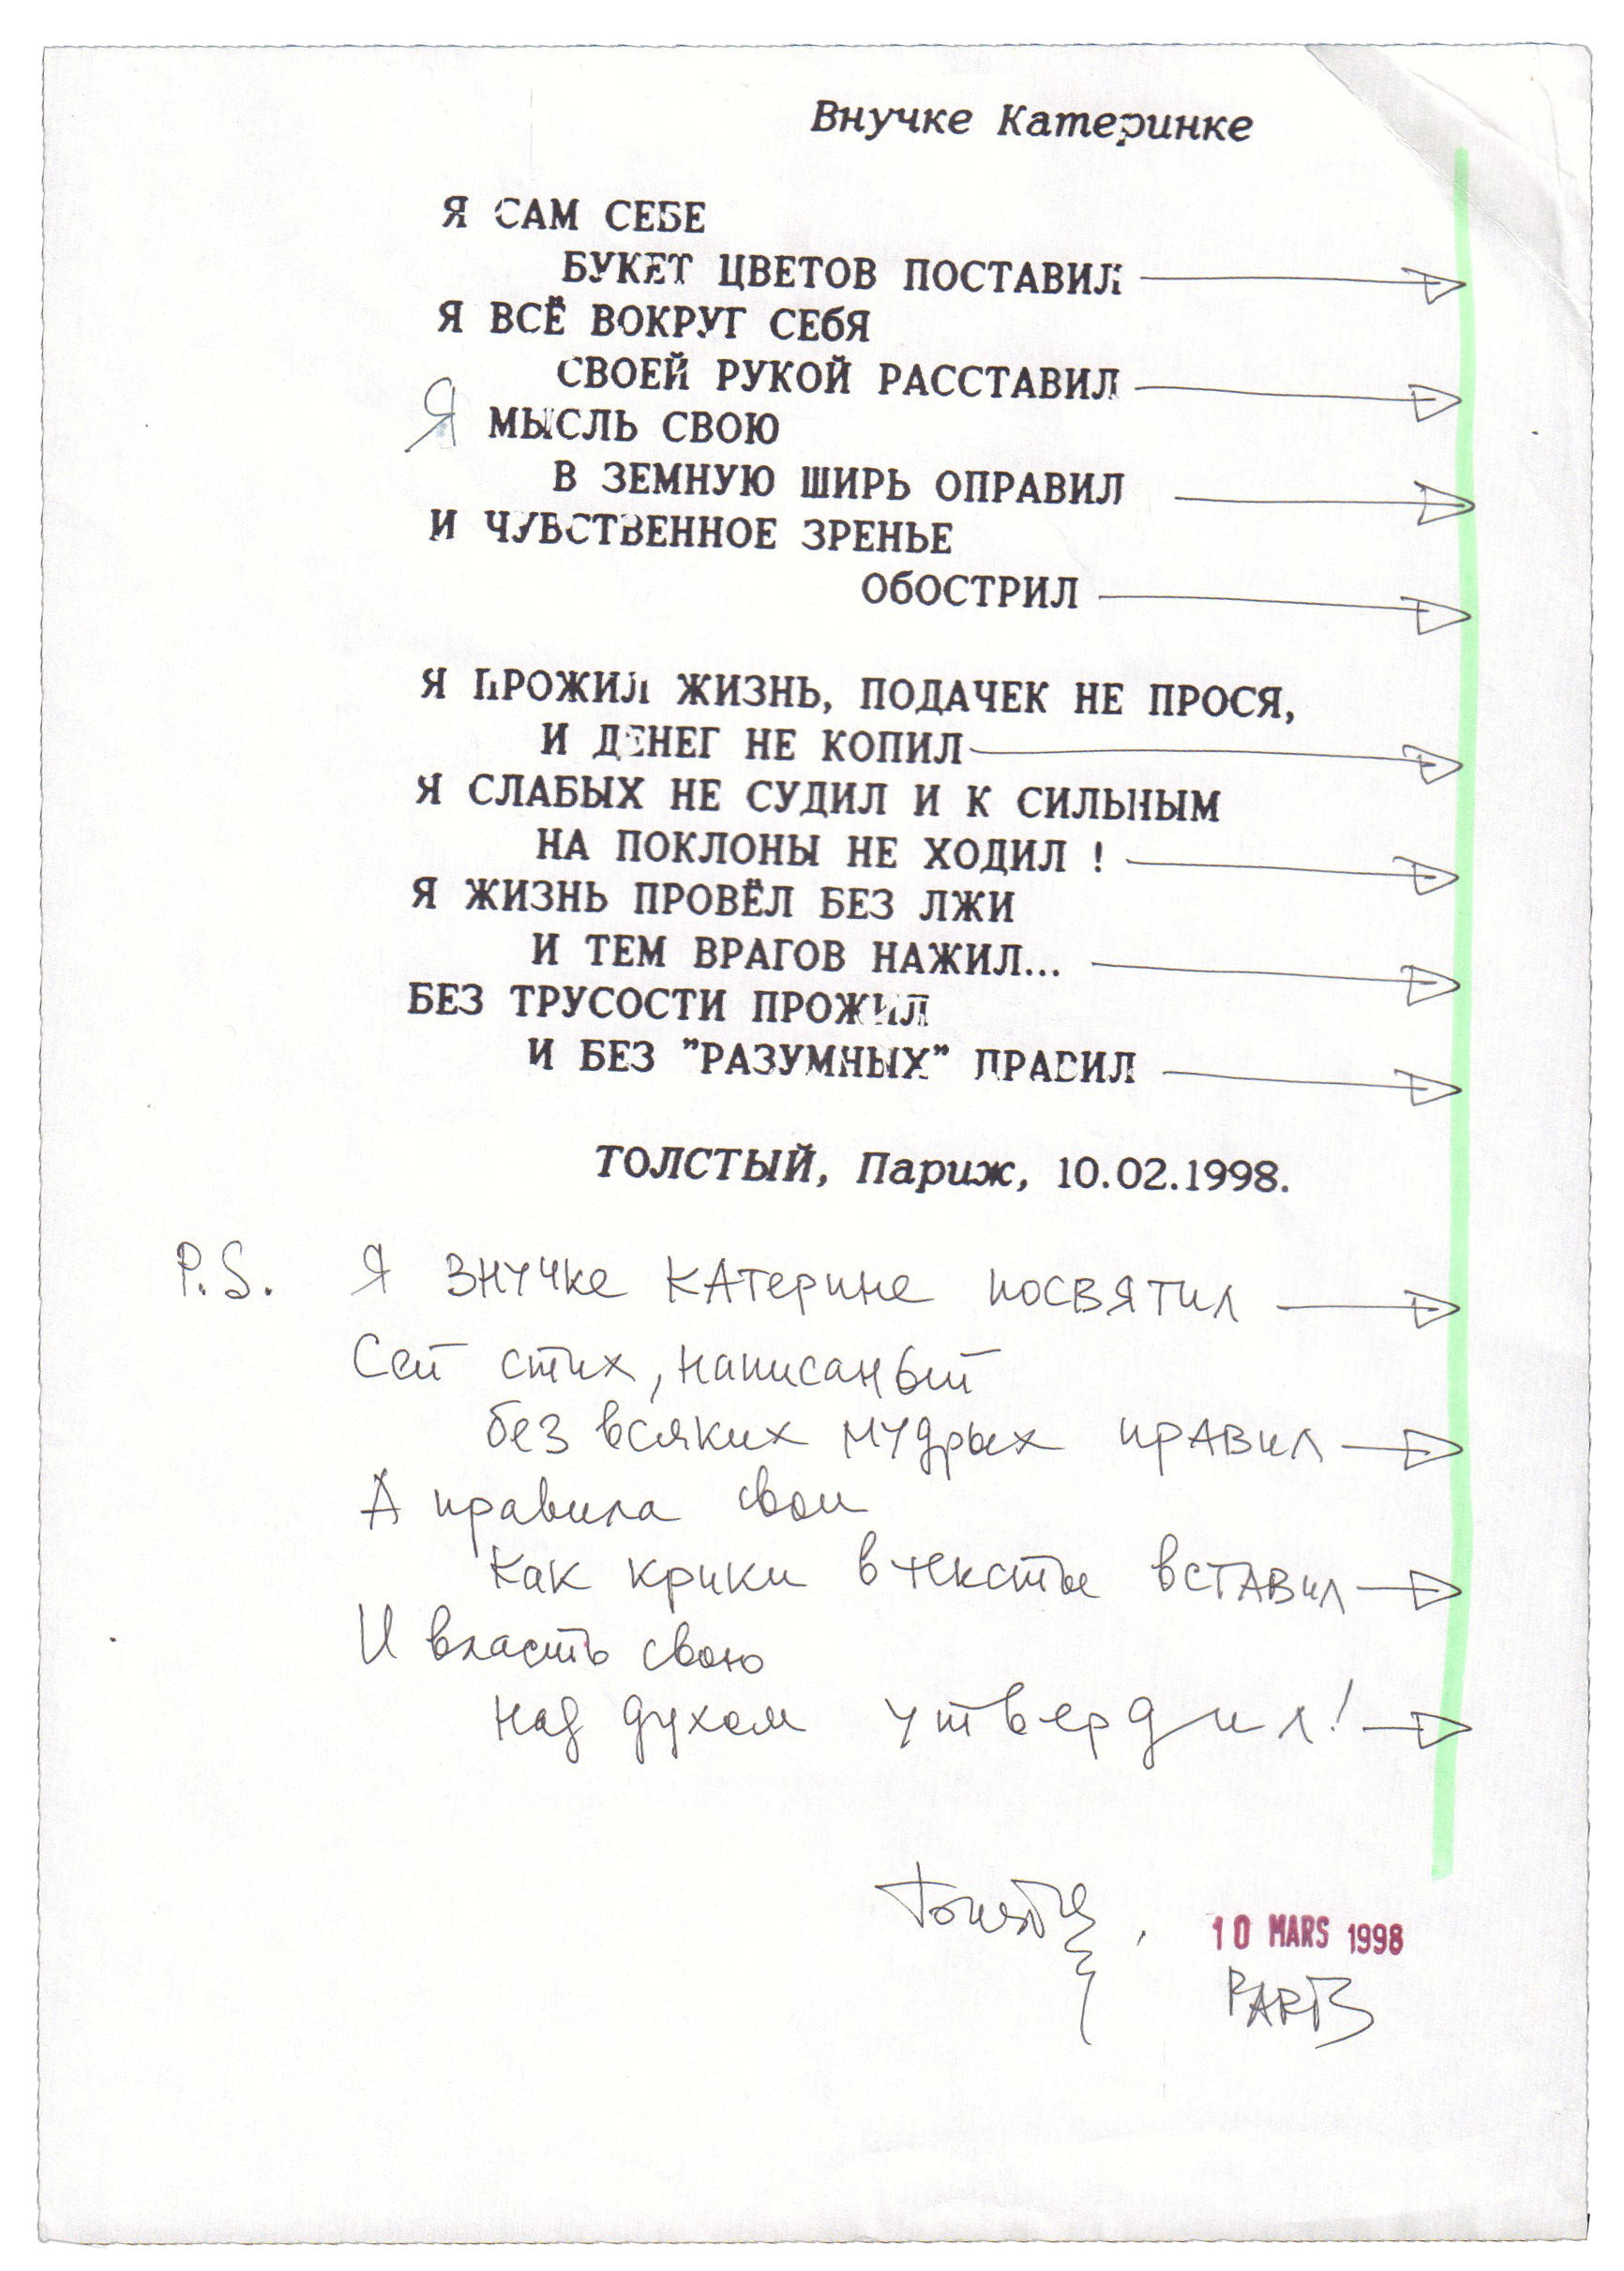 Внучке Катеринке
Я САМ СЕБЕ
БУКЕТ ЦВЕТОВ ПОСТАВИЛ
Я ВСЁ ВОКРУГ СЕбЯ
СВОЕЙ РУКОЙ РАССТАВИЛ
Я МЫСЛЬ СВОЮ
В ЗЕМНУЮ ШИРЬ ОПРАВИЛ
И ЧУВСТВЕННОЕ ЗРЕНЬЕ
ОбОСТРИЛ
Я ПРОЖИЛ ЖИЗНЬ, ПОДАЧЕК НЕ ПРОСЯ,
И ДЕНЕГ НЕ КОПИЛ
Я СЛАБЫХ НЕ СУДИЛ И К СИЛЬНЫМ
НА ПОКЛОНЫ НЕ ХОДИЛ !
Я ЖИЗНЬ ПРОВЁЛ БЕЗ ЛЖИ
И ТЕМ ВРАГОВ НАЖИЛ...
БЕЗ ТРУСОСТИ ПРОЖИЛ
И БЕЗ "РАЗУМНЫХ" ПРАВИЛ
ТОЛСТЫЙ, Париж, 10.02.1998.
P.S. Я ВНУЧке КАтерине посвятил
Сей стих, написаный
без всяких мудрых прАвил
А правила свои
Как крики в тексты встАвил
И власть свою
Над духом утвердил!
Толстый.
10 MARS 1998
PARIS